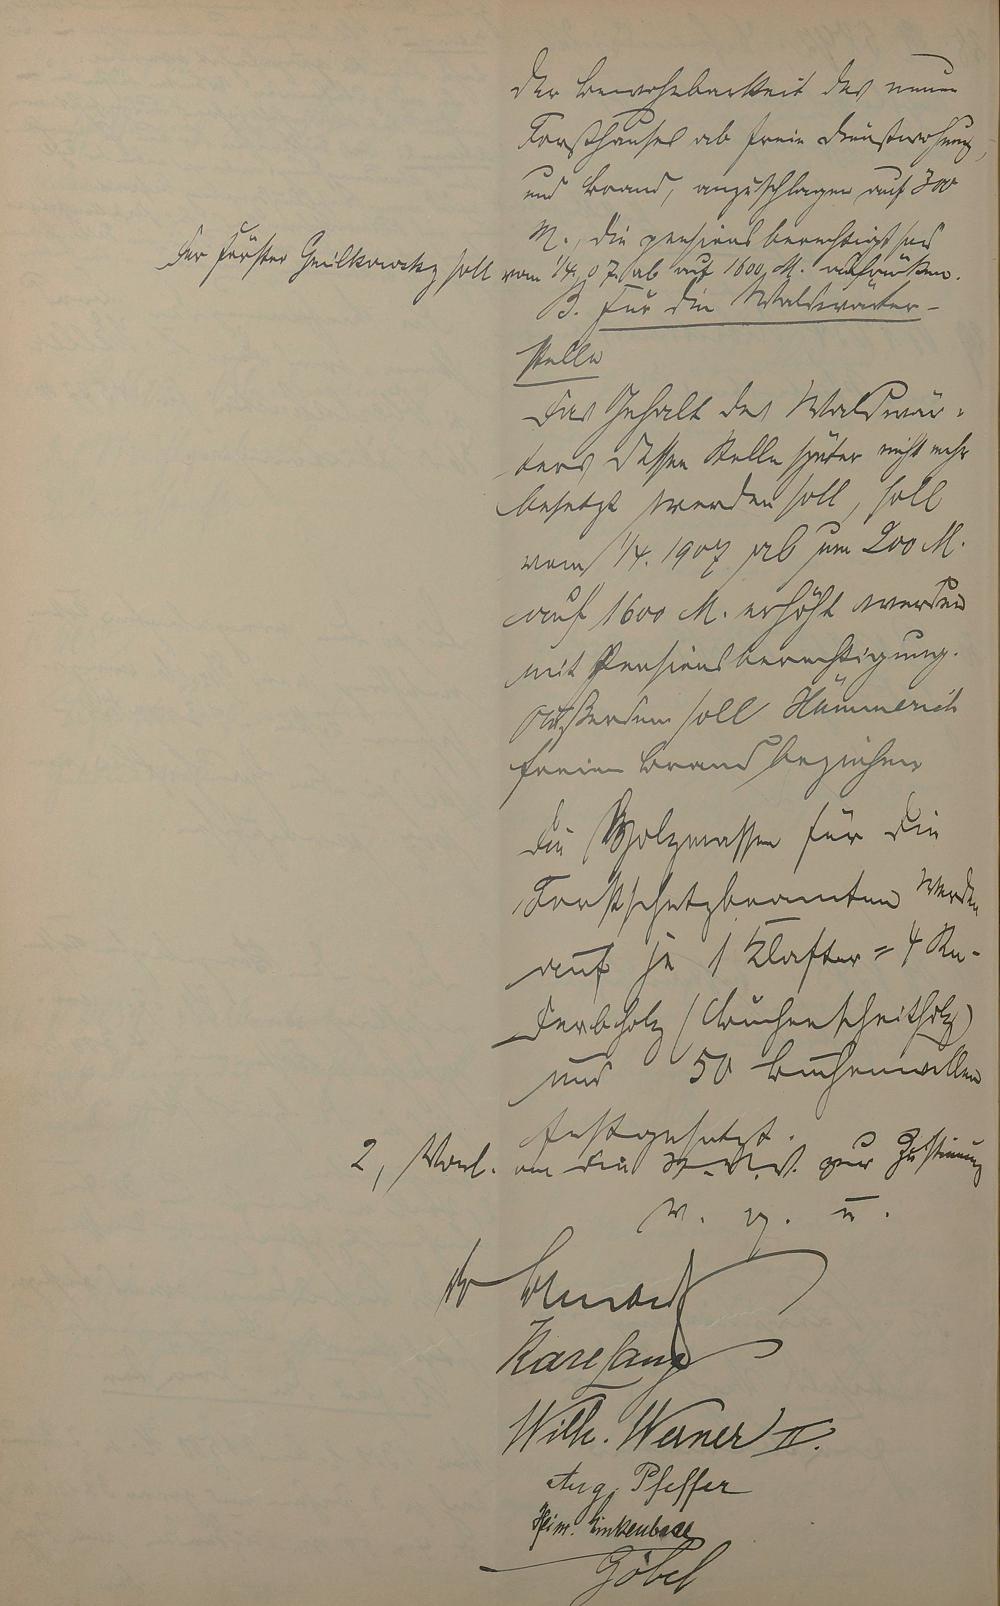 der Bewohnbarkeit des neuen
Forsthauses ab freie Dienstwohnung,
und Brand, anzuschlagen auf 300
M., die pensionsberechtigt sind
Der Förster soll vom 1/4. 07. ab auf 1600 M. aufrücken.
B. Für die Waldwärter-
stelle
Das Gehalt des Waldwär-
ters dessen Stelle später nicht mehr
besetzt werden soll, soll
vom 1/4. 1907 ab um 200 M.
auf 1600 M. erhöht werden
mit Pensionsberechtigung.
Außerdem soll Hümmerich
freien Brand beziehen
Die Holzmassen für die
Forstschutzbeamten werden
auf je 1 Klafter = 4 Rm-
Derbholz (Buchenscheitholz)
und 50 Buchenwellen
festgesetzt.
2, Vorl. an die St. V. V. zur Zustimmung
v. g. u.
Karl Lang
Wilh. Werner II.
Aug. Pfeffer
Heinr. Linkenbach
Göbel